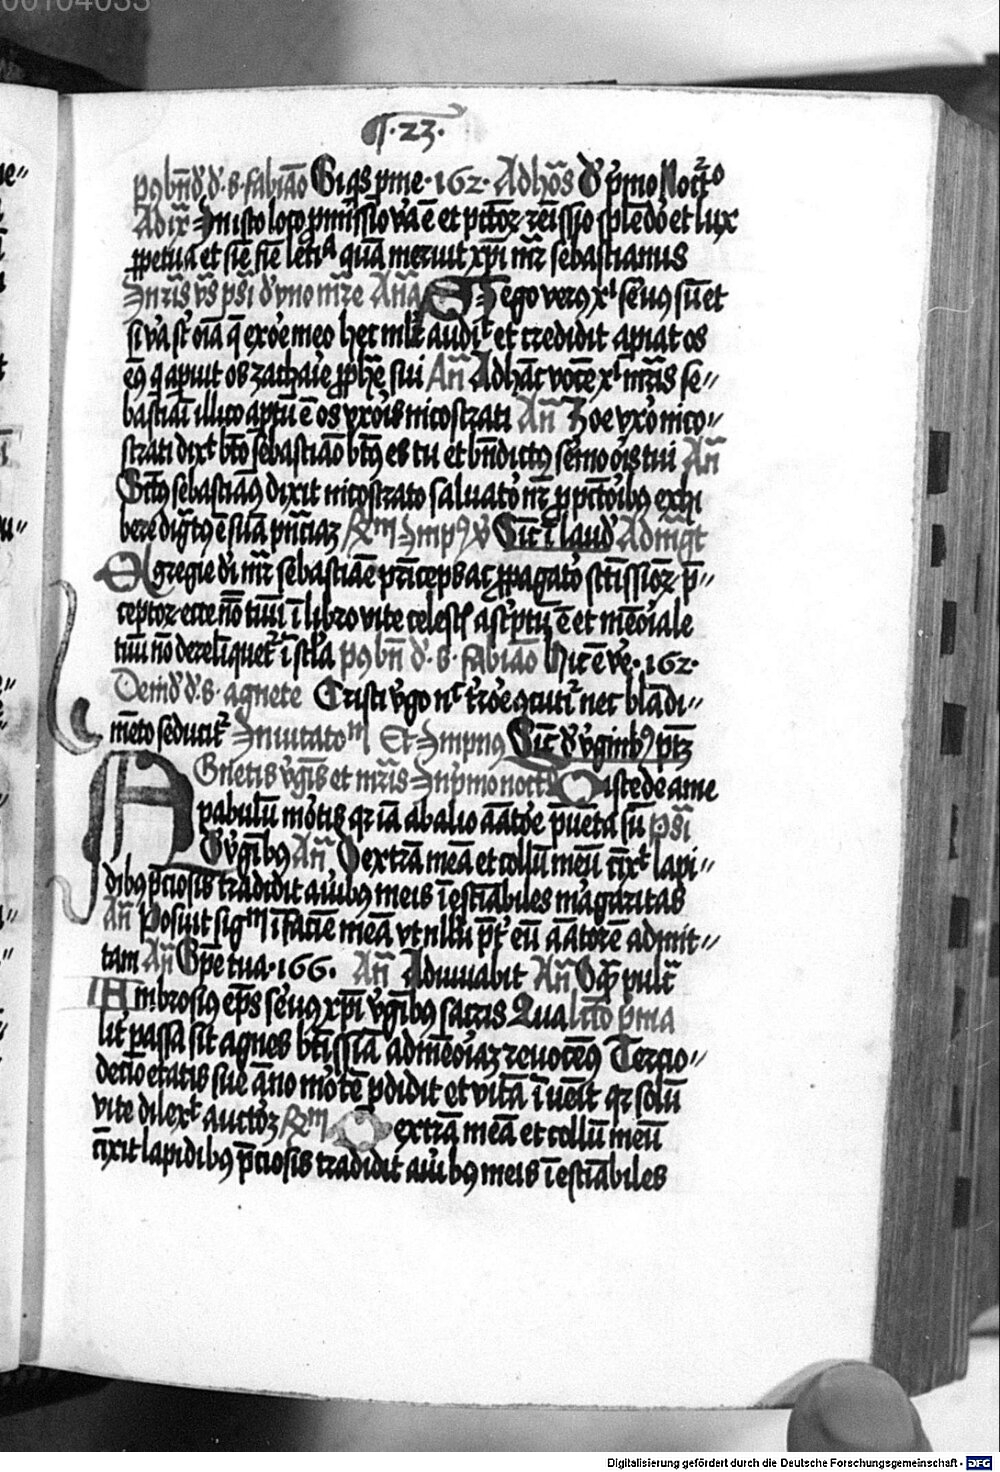 00104033
¶.23.
p9 bñd̄ d̄. s. fabiāo Si qs p̱me. 162. Ad hōs d̄ p̄mo Noct̄o
Ad ix̄ In isto loco p̱missio va ē et pctōꝝ remissio splēdo et lux
ꝑpetua et siē fiē letia quā meruit xp̄i mr̄ sebastianus
Añā ego verꝰ xi seruꝰ sū et
si va st oīa q̄ ex ore meo hec mlr̄ audit et credidit apiat os
eiꝰ q apuit os zacharie ꝓph̄e sui Añ Ad hāc vocē xi mr̄is se〃
bastiai illico aptū ē os vxoris nicostrati Añ Zoe vxo nico〃
strati dixt bt̄o sebastiāo bt̄ꝰ es tu et bñdictꝰ sermo oris tui Añ
Sctꝰ sebastiāꝰ dixit nicostrato saluato nr̄ ꝓ pctōibꝰ exhi
bere digtꝰ ē suā pñciaʒ Sic ī laud Ad mgt
Egregie di mr̄ sebastiāe p̄nceps ac ꝓpagato sctissioꝝ p̄〃
ceptoꝝ ecce nō tuū ī libro vite celestis asc̄ptū ē et meoīale
tuū nō derelīquet ī scl̄a p9 bñ d̄. s. fabiāo Hic ē ve. 162.
Deīd d̄. s. agnete Cristi v̄go nec t̄roe ꝯcutit nec blādi〃
mēto seducit Inuitatom Et Impnꝰ Sic d̄ v̄gīnibꝰ ptʒ
Agnetis v̄gīs et mr̄is In p̄mo noct Discede a me
pabulū mortis qr iā ab alio amatoe p̄uēta sū ps̄i
d̄ v̄gībꝰ Añ Dextrā meā et collū meū cīxt lapi〃
dibꝰ p̄ciosis tradidit auribꝰ meis īestiābiles margaritas
Añ Posuit sigm ī faciē meā vt nllū p̄t eū amatorē admit〃
tam Añ Spe tua. 166. Añ Adiuuabit Añ Oīp pulc̄
Ambrosiꝰ ep̄s seruꝰ xp̄i v̄gībꝰ sacris Qua l̄tio p̄ma
lit̄ passa sit agnes bt̄issiā ad mēoīaʒ reuocēꝰ Tercio〃
decio etatis sue āno mortē p̱didit et vitā īuenit qr solū
vite dilext auctoʒ Dextrā meā et collū meū
cīxit lapidibꝰ p̄ciosis tradidit auribꝰ meis īestiābiles
Digitalisierung gefördert durch die Deutsche Forschungsgemeinschaft - DFG